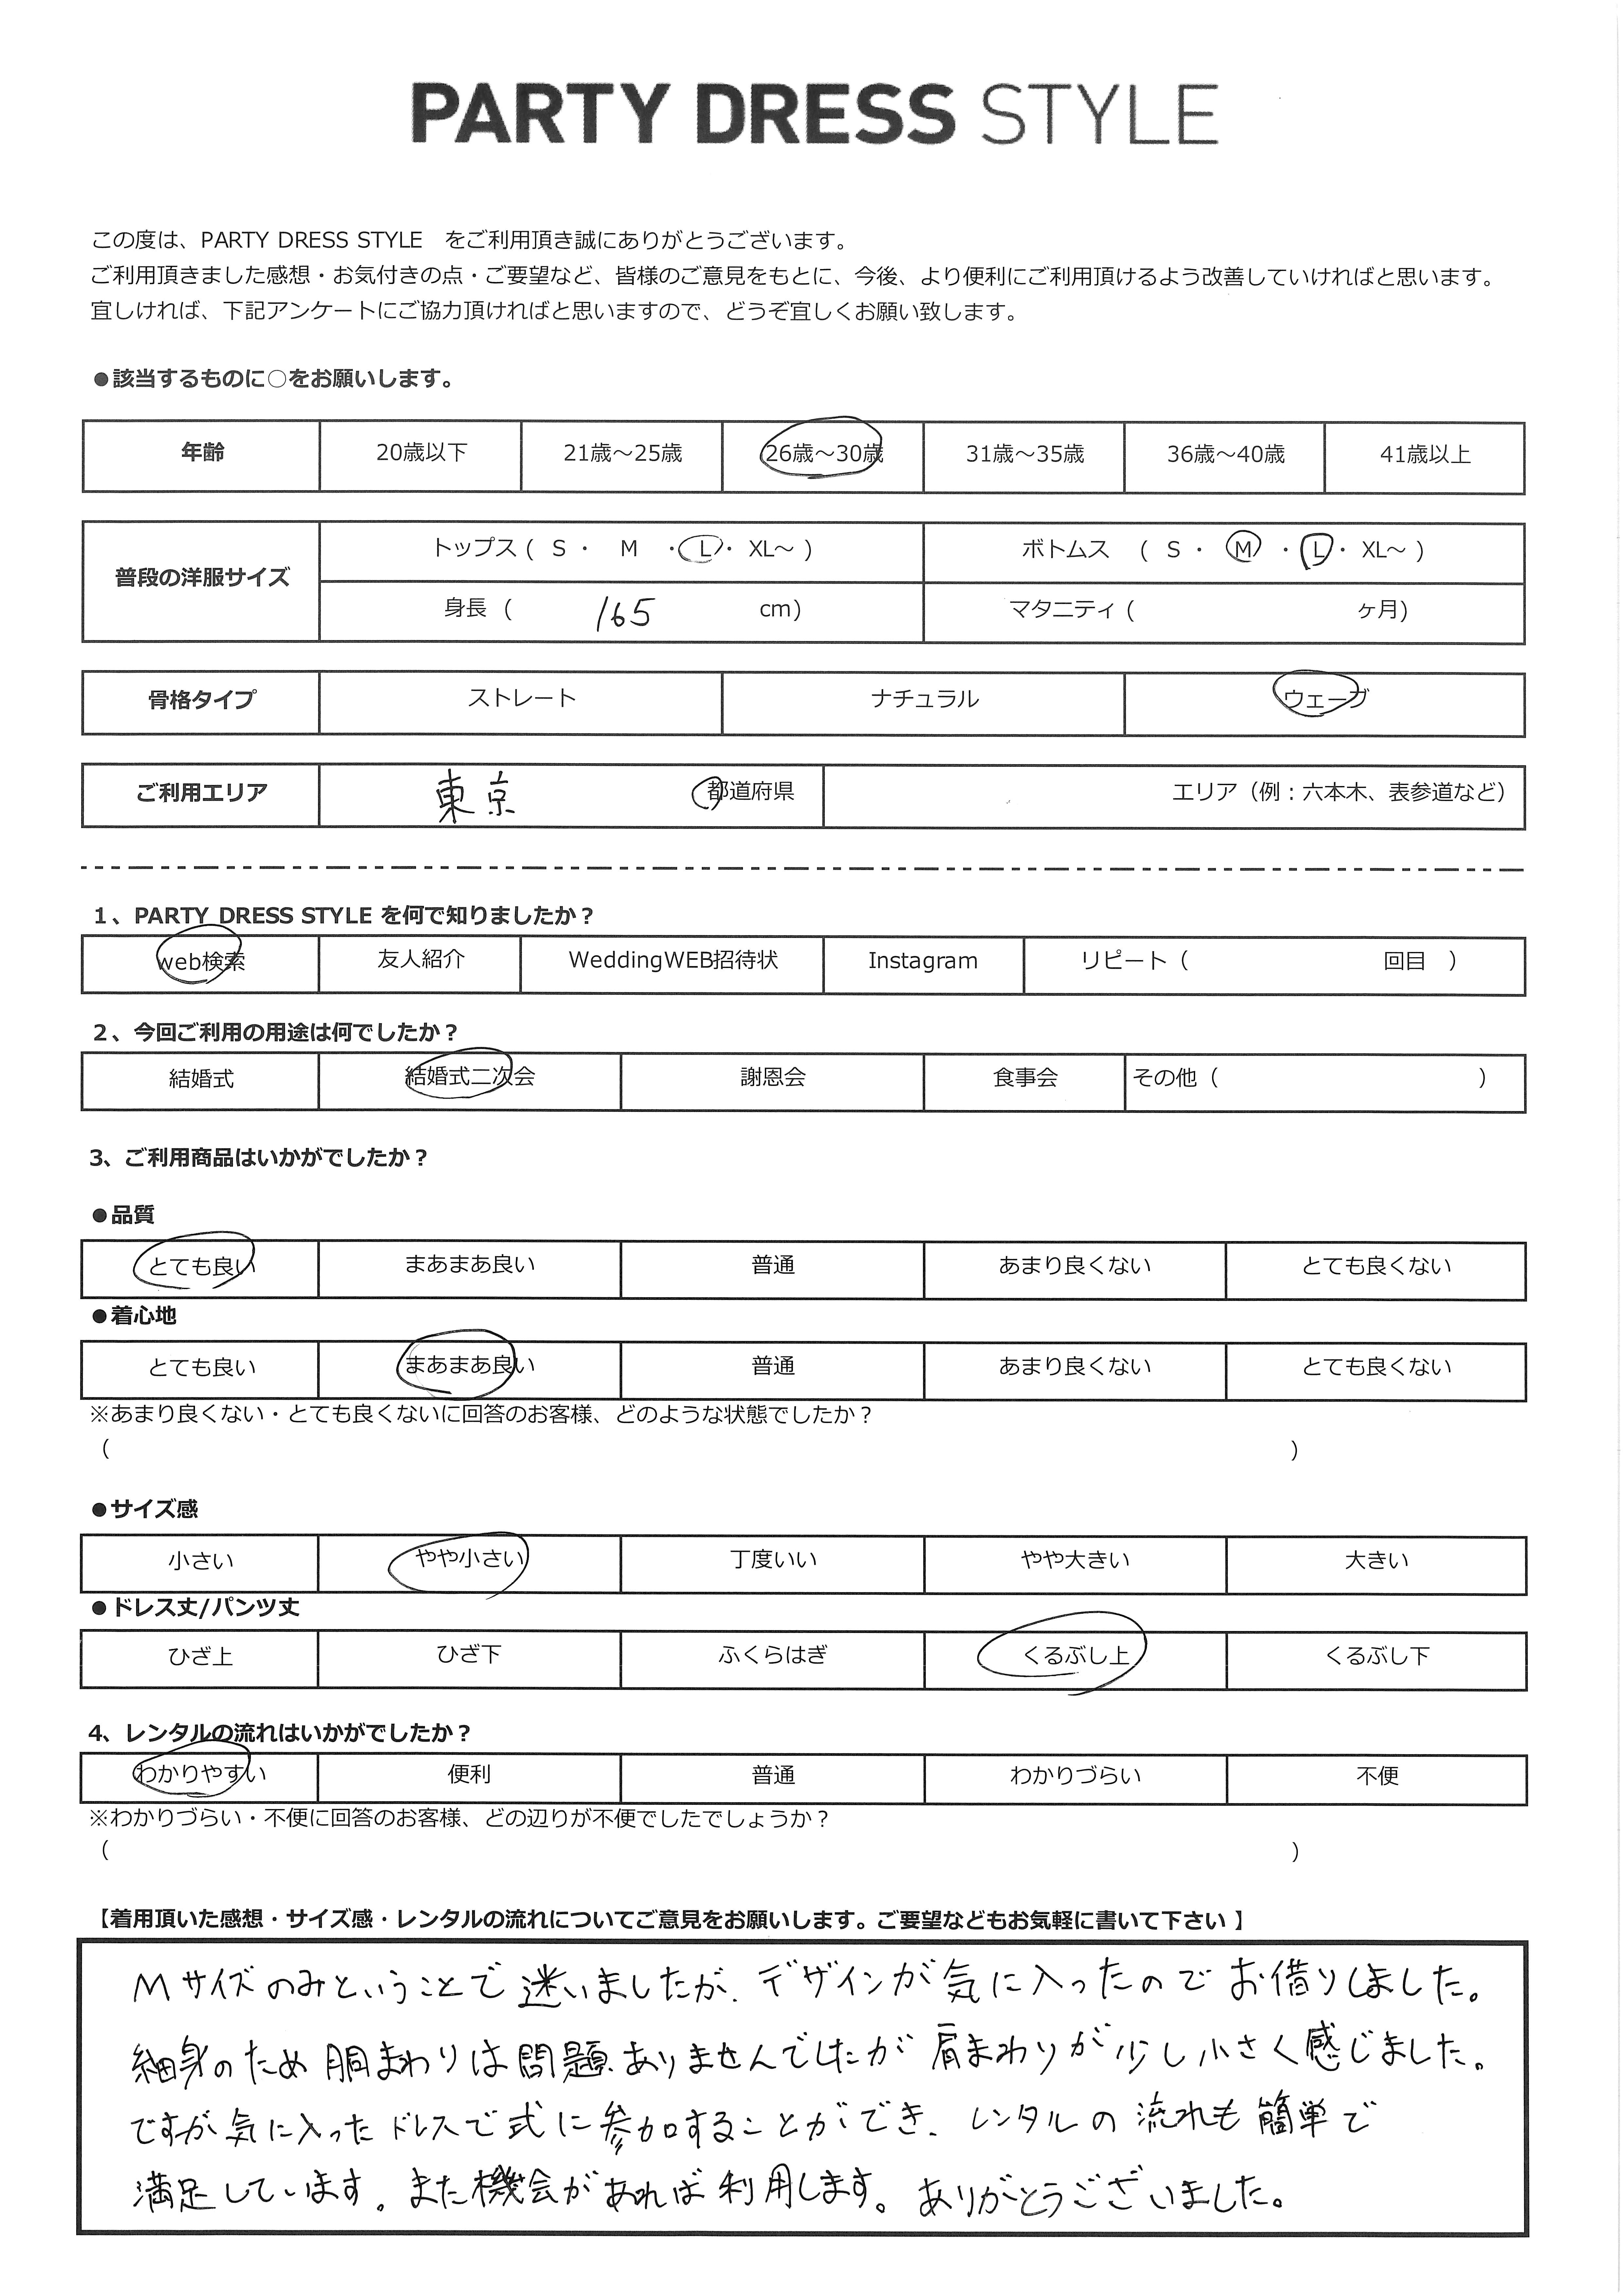 PARTY DRESS STYLE
この度は、PARTY DRESS STYLE　をご利用頂き誠にありがとうございます。
ご利用頂きました感想・お気付きの点・ご要望など、皆様のご意見をもとに、今後、より便利にご利用頂けるよう改善していければと思います。
宜しければ、下記アンケートにご協力頂ければと思いますので、どうぞ宜しくお願い致します。
●該当するものに○をお願いします。
年齢 20歳以下 21歳～25歳 26歳～30歳 31歳～35歳 36歳～40歳 41歳以上
普段の洋服サイズ トップス ( S ・ M ・ L ・ XL～ ) ボトムス ( S ・ M ・ L ・ XL～ )
身長 ( 165 cm) マタニティ ( ヶ月)
骨格タイプ ストレート ナチュラル ウェーブ
ご利用エリア 東京 都道府県 エリア（例：六本木、表参道など）
1、PARTY DRESS STYLE を何で知りましたか？
web検索 友人紹介 WeddingWEB招待状 Instagram リピート（ 回目 ）
2、今回ご利用の用途は何でしたか？
結婚式 結婚式二次会 謝恩会 食事会 その他（ ）
3、ご利用商品はいかがでしたか？
●品質
とても良い まあまあ良い 普通 あまり良くない とても良くない
●着心地
とても良い まあまあ良い 普通 あまり良くない とても良くない
※あまり良くない・とても良くないに回答のお客様、どのような状態でしたか？
（ ）
●サイズ感
小さい やや小さい 丁度いい やや大きい 大きい
●ドレス丈/パンツ丈
ひざ上 ひざ下 ふくらはぎ くるぶし上 くるぶし下
4、レンタルの流れはいかがでしたか？
わかりやすい 便利 普通 わかりづらい 不便
※わかりづらい・不便に回答のお客様、どの辺りが不便でしたでしょうか？
（ ）
【着用頂いた感想・サイズ感・レンタルの流れについてご意見をお願いします。ご要望などもお気軽に書いて下さい 】
Mサイズのみということで迷いましたが、デザインが気に入ったのでお借りしました。
細身のため胴まわりは問題ありませんでしたが肩まわりが少し小さく感じました。
ですが気に入ったドレスで式に参加することができ、レンタルの流れも簡単で
満足しています。また機会があれば利用します。ありがとうございました。